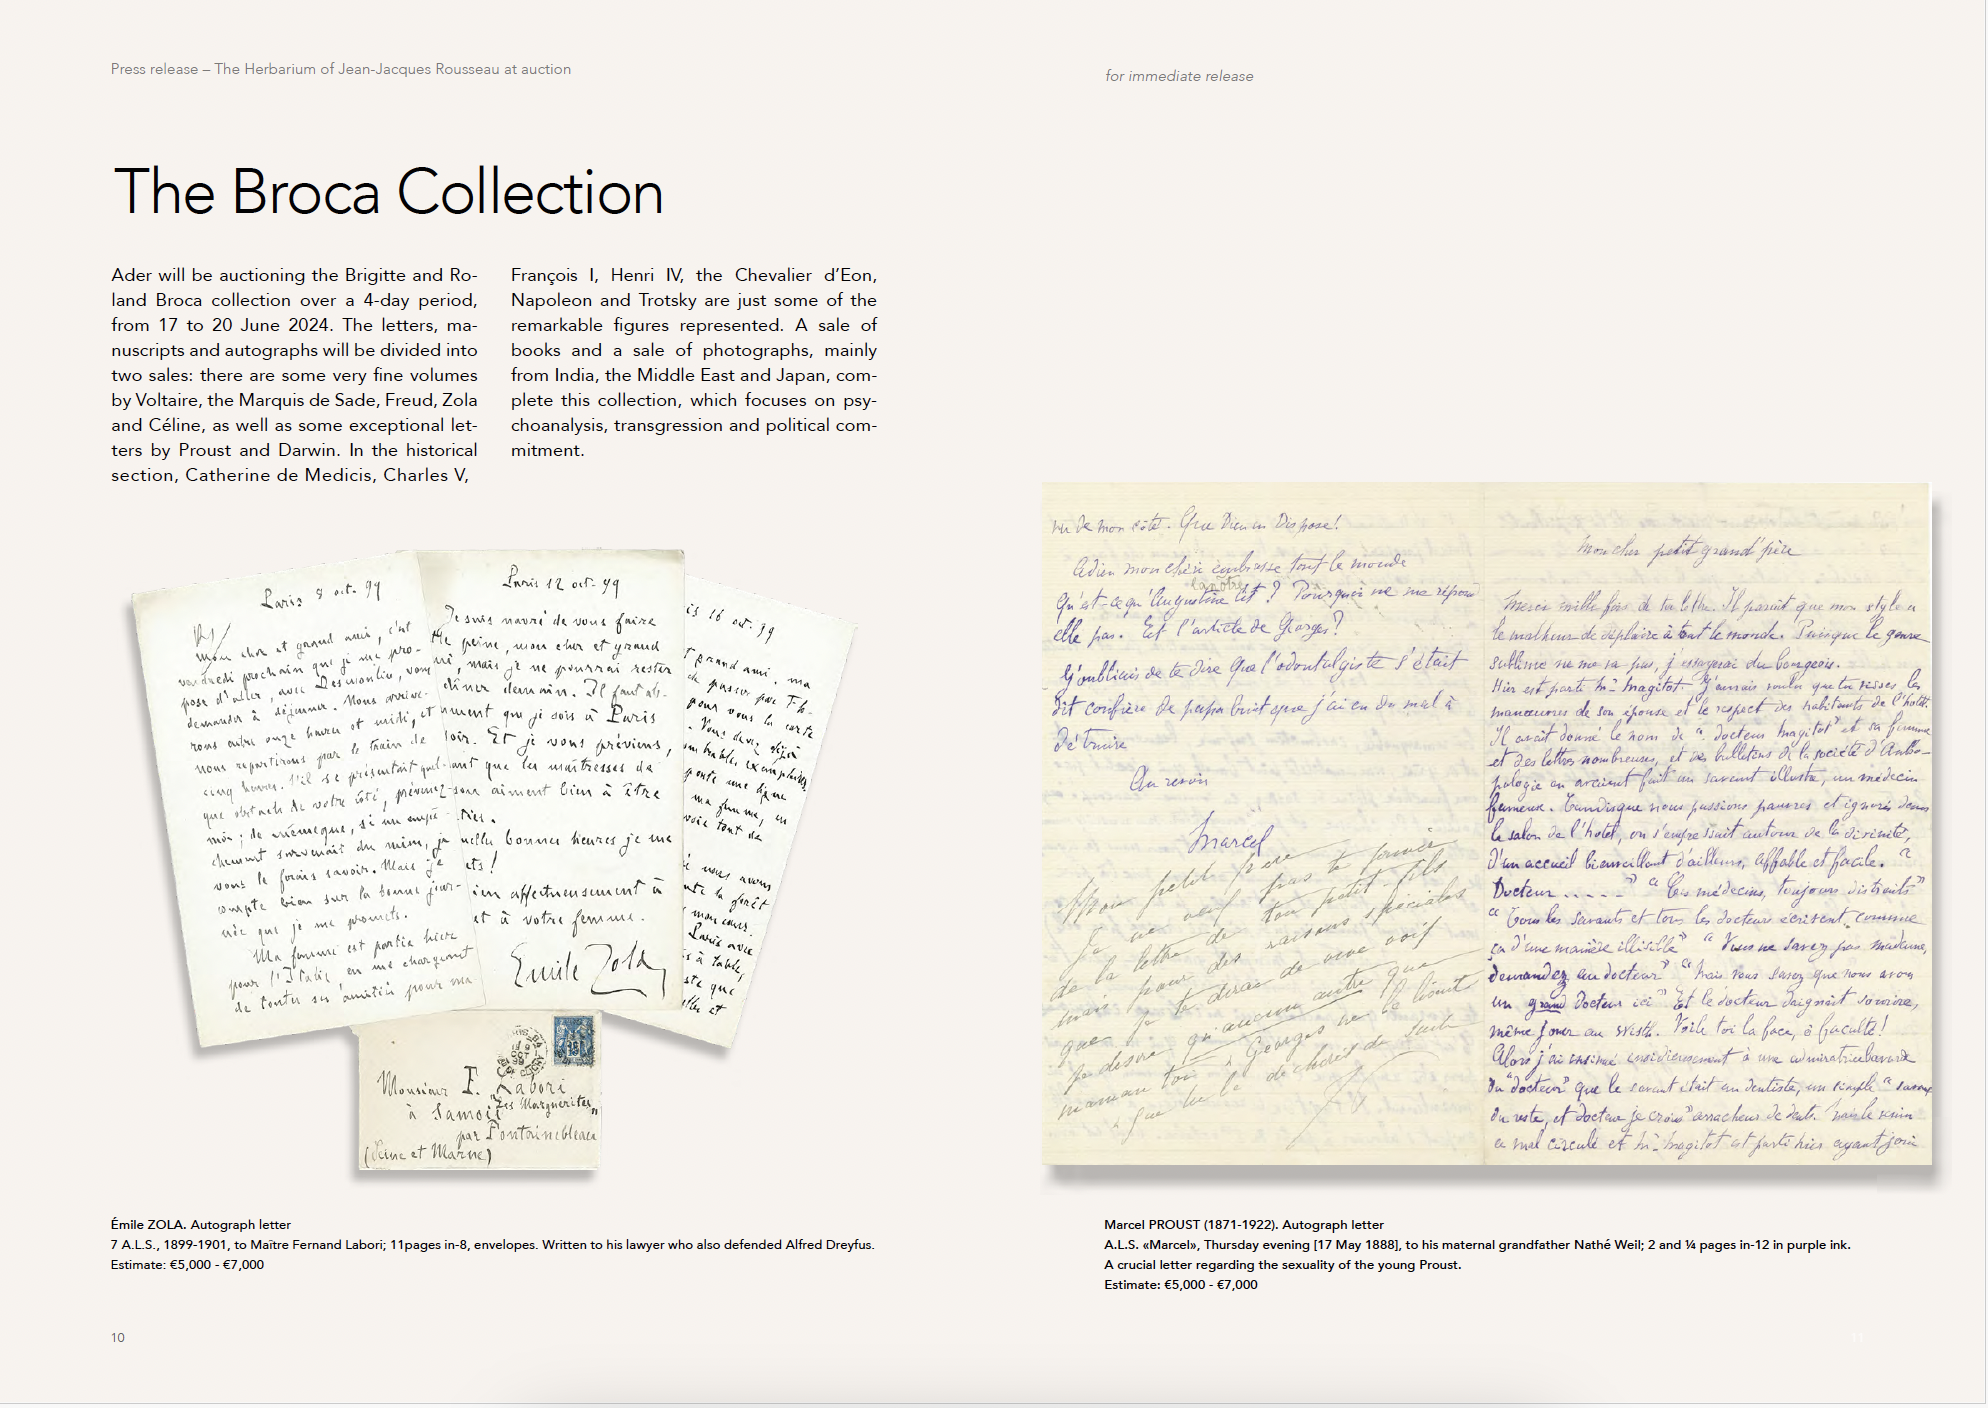 Press release – The Herbarium of Jean-Jacques Rousseau at auction
for immediate release
The Broca Collection
Ader will be auctioning the Brigitte and Ro-
land Broca collection over a 4-day period,
from 17 to 20 June 2024. The letters, ma-
nuscripts and autographs will be divided into
two sales: there are some very fine volumes
by Voltaire, the Marquis de Sade, Freud, Zola
and Céline, as well as some exceptional let-
ters by Proust and Darwin. In the historical
section, Catherine de Medicis, Charles V,
François I, Henri IV, the Chevalier d’Eon,
Napoleon and Trotsky are just some of the
remarkable figures represented. A sale of
books and a sale of photographs, mainly
from India, the Middle East and Japan, com-
plete this collection, which focuses on psy-
choanalysis, transgression and political com-
mitment.
Paris 8 oct. 99
Mon cher et grand ami, c'est
vendredi prochain que je me pro-
pose d'aller, avec Desmoulin, vous
demander à déjeuner. Nous arrive-
rons entre onze heures et midi, et
nous repartirons par le train de
cinq heures. S'il se présentait quel-
que obstacle de votre côté, prévenez-
moi; de même que, si un empê-
chement survenait du mien, je
vous le ferais savoir. Mais je
compte bien sur la bonne jour-
née que je me promets.
Ma femme est partie hier
pour l'Italie, en me chargeant
de toutes ses amitiés pour ma
Paris 12 oct. 99
Je suis navré de vous faire
peine, mon cher et grand
mais je ne pourrai rester
dîner demain. Il faut ab-
ument que je sois à Paris
soir. Et je vous préviens,
ant que les maîtresses de
son aiment bien à être
ties.
uelles bonnes heures je me
ets!
ien affectueusement à
et à votre femme.
Emile Zola
is 16 oct. 99
t grand ami, ma
de passer par
pour vous la carte
Vous devez déjà
exemplaires
porte une ligne
ma femme, en
voie tout de
nous avons
la forêt
mon cœur.
Paris avec
s à table,
ste que
elles et
Monsieur F. Labori
à Samois "Les Marguerites"
par Fontainebleau
(Seine et Marne)
de mon côté. Que Dieu en dispose!
Adieu mon chéri embrasse tout le monde
Qu'est-ce qu'Augustine lit? Pourquoi ne me répond
elle pas. Et l'article de Georges?
J'oubliais de te dire que l'odontalgiste s'était
dit confrère de papa bruit que j'ai eu du mal à
détruire
Au revoir
Marcel
Mon petit père
Je ne veux pas te fermer
de la lettre de ton petit-fils
mais pour des raisons spéciales
que je te dirai
je désire qu'aucun autre que
maman toi Georges ne la lisent
que tu la déchires de suite
Mon cher petit grand'père
Merci mille fois de ta lettre. Il paraît que mon style a
le malheur de déplaire à tout le monde. Puisque le genre
sublime ne me va pas, j'essayerai du bourgeois.
Hier est parti Mr Magitot. J'aurais voulu que tu visses les
manœuvres de son épouse et le respect des habitants de l'hôtel.
Il avait donné le nom de "docteur Magitot" et sa femme
et des lettres nombreuses, et des bulletins de la société d'Anthro-
pologie en avaient fait un savant illustre, un médecin
fameux. Tandis que nous passions pauvres et ignorés dans
le salon de l'hôtel, on s'empressait autour de la divinité,
d'un accueil bienveillant d'ailleurs, affable et facile. "
Docteur ......" "Ces médecins, toujours distraits"
"Tous les savants et tous les docteurs écrivent comme
ça d'une manière illisible" "Vous ne savez pas madame,
demandez au docteur" "Mais vous savez que nous avons
un grand Docteur ici" Et le docteur daignait sourire,
même jouer au whist. Voile toi la face, ô faculté!
Alors j'ai insinué insidieusement à une admiratrice bavarde
du "docteur" que le savant était un dentiste, un simple "savant
du reste, et docteur je crois" arracheur de dents. Mais le venin
a mal circulé et Mr Magitot est parti hier ayant joui
Émile ZOLA. Autograph letter
7 A.L.S., 1899-1901, to Maître Fernand Labori; 11pages in-8, envelopes. Written to his lawyer who also defended Alfred Dreyfus.
Estimate: €5,000 - €7,000
Marcel PROUST (1871-1922). Autograph letter
A.L.S. «Marcel», Thursday evening [17 May 1888], to his maternal grandfather Nathé Weil; 2 and ¼ pages in-12 in purple ink.
A crucial letter regarding the sexuality of the young Proust.
Estimate: €5,000 - €7,000
10
11